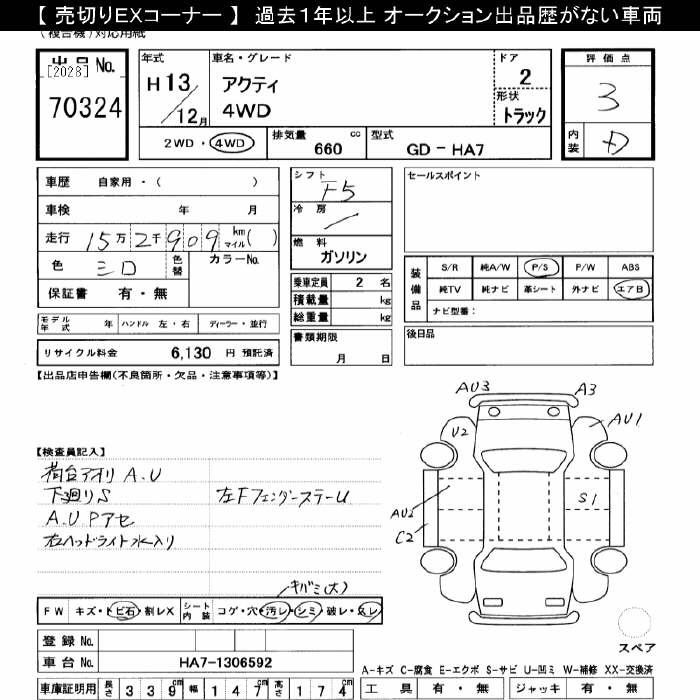 【 売切りEXコーナー 】 過去１年以上 オークション出品歴がない車両
(複合機)対応用紙
出品 No.
[2028]
70324
年式
H13/12月
車名・グレード
アクティ
4WD
ドア
2
形状
トラック
評価点
3
内装
D
2WD・4WD
排気量 660 cc
型式 GD-HA7
車歴 自家用・( )
車検 年 月
走行 15万2千909 km マイル( )
色 シロ 色替 カラーNo.
保証書 有・無
シフト F5
冷房
燃料 ガソリン
乗車定員 2 名
積載量 kg
総重量 kg
セールスポイント
装備品
S/R 純A/W P/S P/W ABS
純TV 純ナビ 革シート 外ナビ エアB
ナビ型番：
モデル年式 年 ハンドル 左・右 ディーラー・並行
リサイクル料金 6,130 円 預託済
書類期限
月 日
後日品
【出品店申告欄(不良箇所・欠品・注意事項等)】
AU3 A3
U2 AU1
AU2 S1
C2
【検査員記入】
荷台アオリ A.U
下廻りS 左Fフェンダーステー U
A.U Pアセ
右ヘッドライト水入り
キバミ(大)
FW キズ・トビ石・割レX シート内装 コゲ・穴・汚レ・シミ・破レ・スレ
スペア
登録 No.
車台 No. HA7-1306592
A-キズ C-腐食 E-エクボ S-サビ U-凹ミ W-補修 XX-交換済
車庫証明用 長さ 339cm 幅 147cm 高さ 174cm
工具 有・無 ジャッキ 有・無